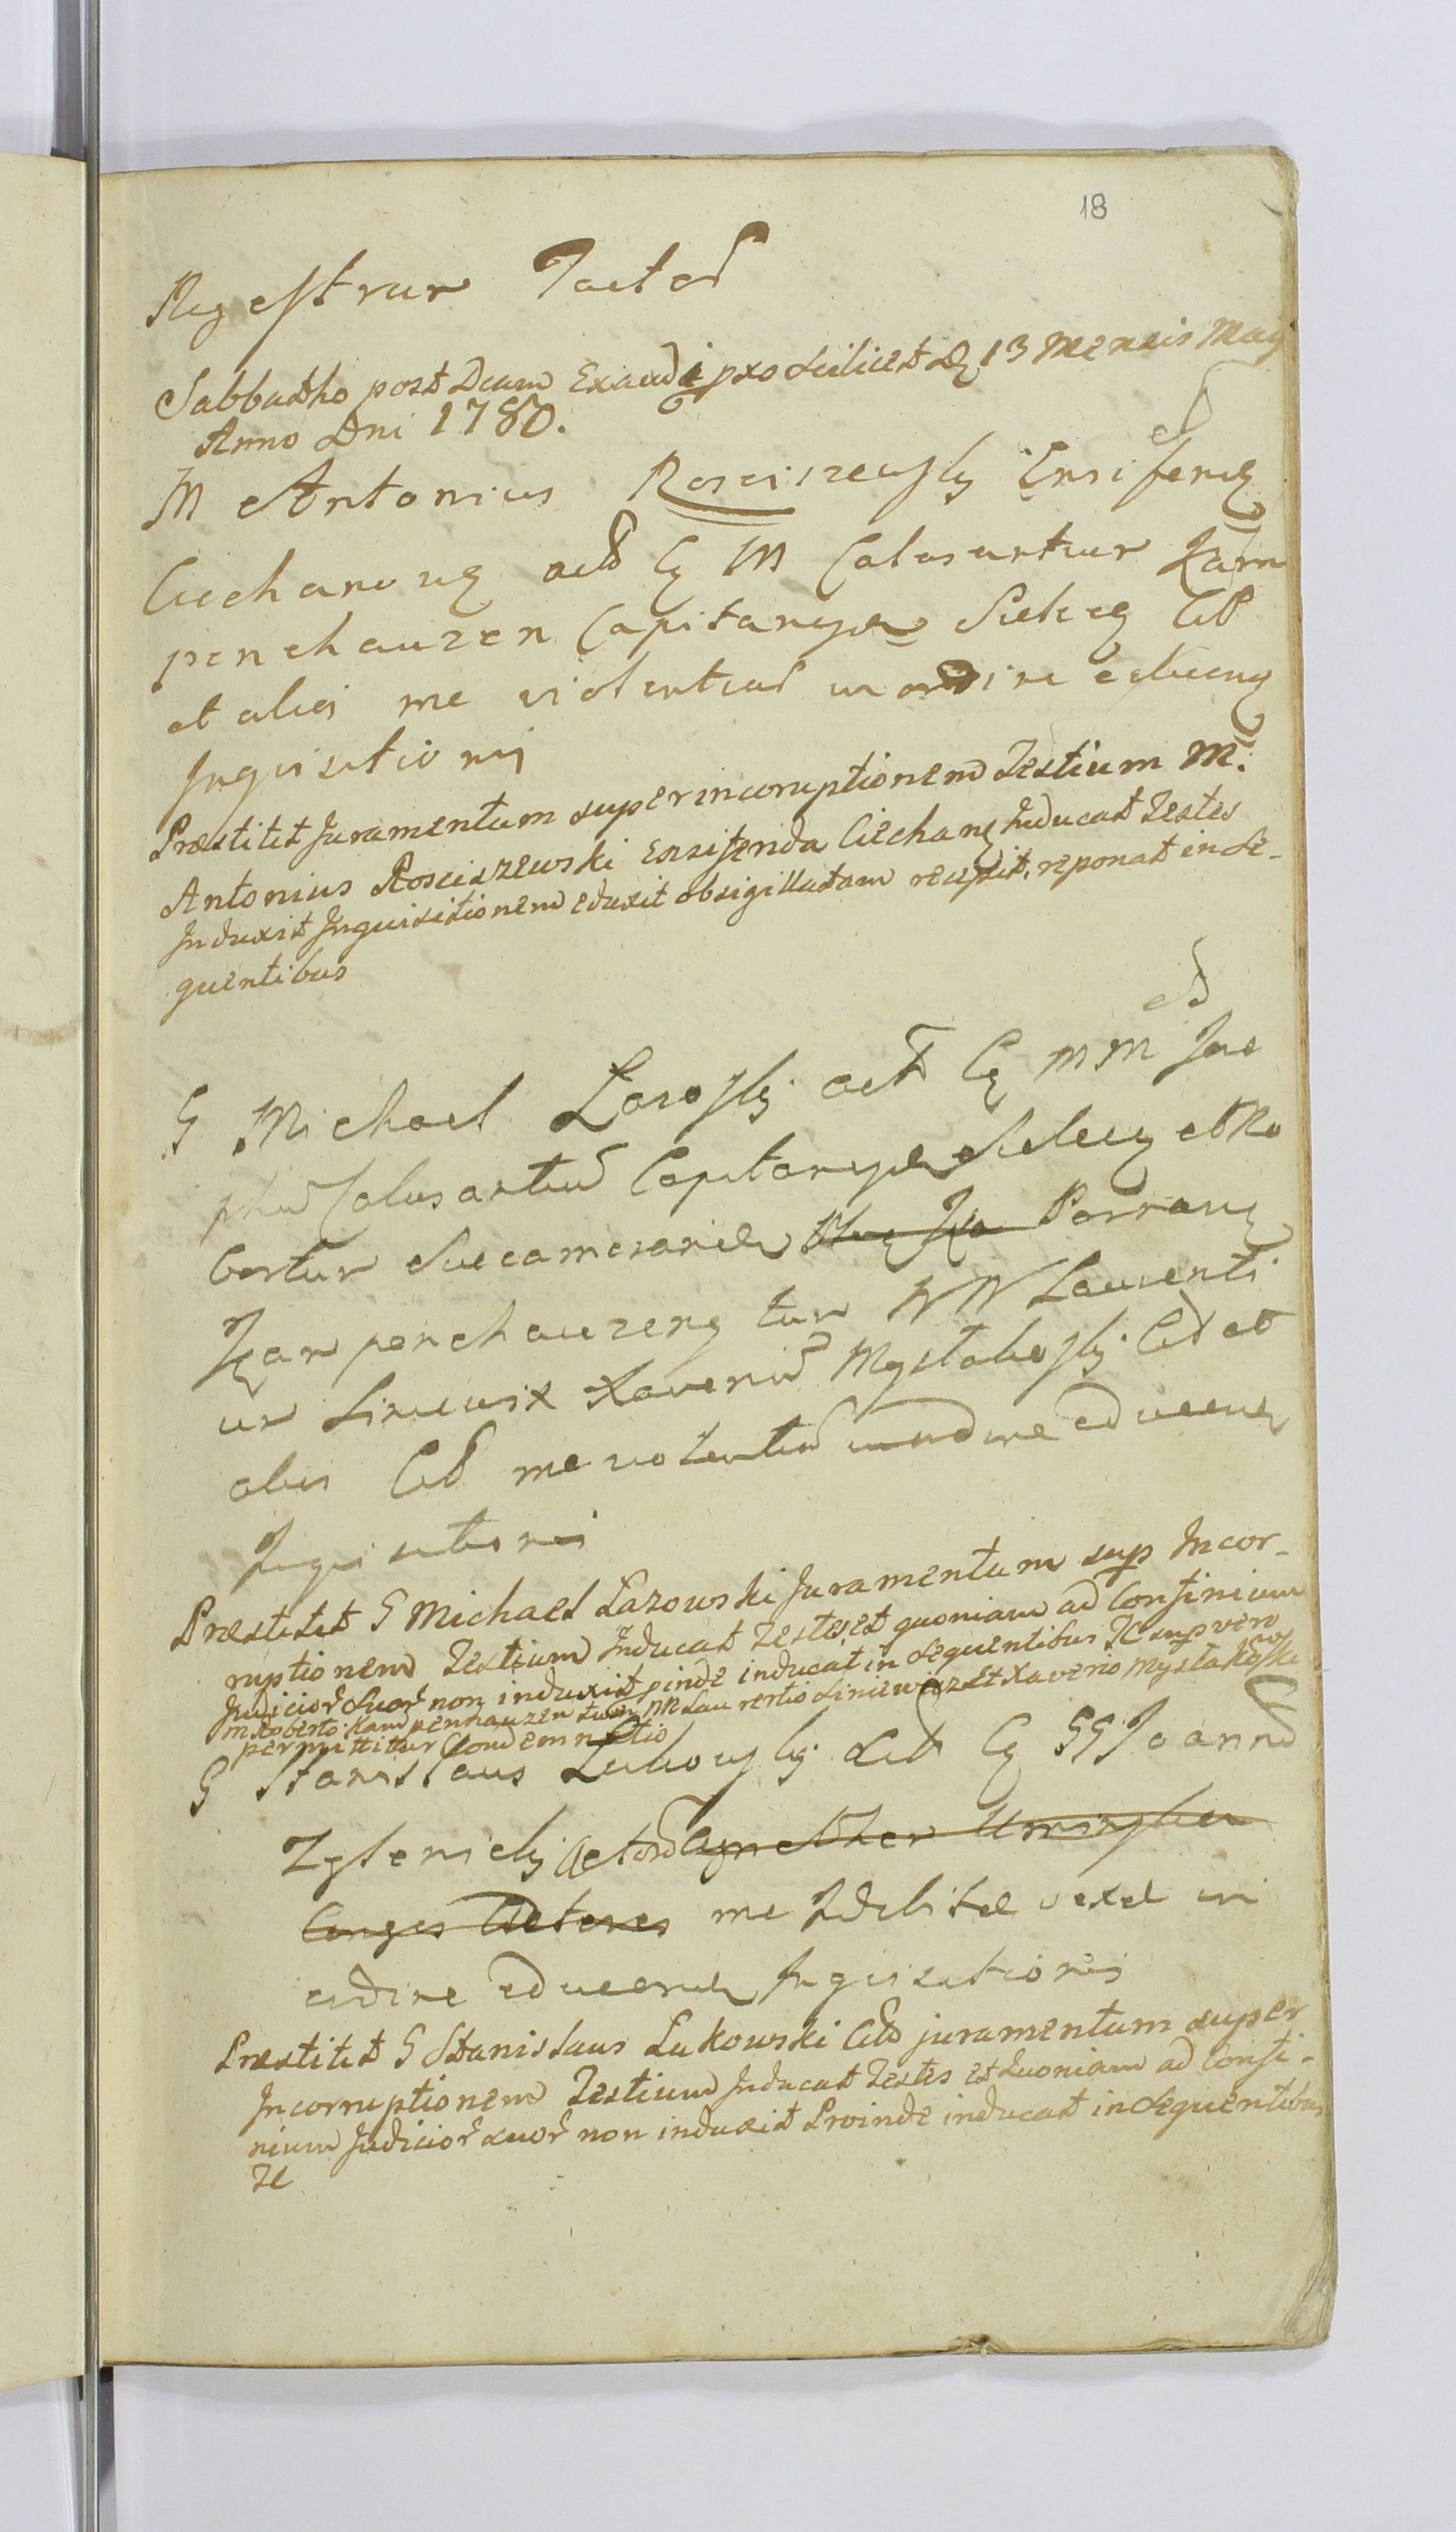 18
Regestrum Tactor
Sabbatho post Dcam Exaudi pxo scilicet D 13 Mensis May
Anno Dni 1780.
M Antonius Rosciszewsky Ensifer
Ciechanov act C M Calasantium Kam
penchauzen Capitan Cit
et alios me violentias in ordine educen
Inquisitioni
Præstitit Juramentum super incoruptionem Testium M.
Antonius Rosciszewski Ensiferida Ciechan Inducat Testes
Induxit Inquisitionem eduxit obsigillatam recepit, reponat in se-
quentibus
G Michael Lazosky act C MM Jose
phum Calasantium Capitan et Ro
bertum Succamerarium Parnaw
Kampenchauzen tum NN Laurenti
um Liniewix Xaverium Mystakosky Cit et
alios Cit me violentias in ordine educen
Inquisitioni
Præstitit G Michael Lazowski Juramentum sup Incor-
ruptionem Testium Inducat Testes, et quoniam ad Confinium
Judicior Suor non induxit pinde inducat in sequentibus TC sup vero
M Roberto Kampenhauzen tum NN Laurentio Liniewicz Et Xaverio Mystakoski
permittitur Condemnatio
G Stanislaus Lukowsky Act C GG Joann
Zglenicky Actor
Actores me Idebite vexat in
ordine educen Inquisitionis
Præstitit G Stanislaus Lukowski Cit juramentum super
Incorruptionem Testium Inducat Testes et Quoniam ad Confi-
nium Judicior suor non induxit Proinde inducat in sequentibus
TC